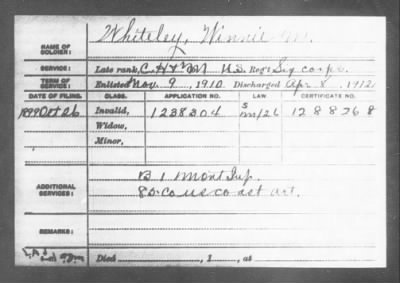 NAME OF SOLDIER: Whiteley, Winnie M.
SERVICE: Late rank, C. H & M U.S. Reg't Sig corps.
TERM OF SERVICE: Enlisted Nov. 9, 1910 Discharged Apr 8, 1912
DATE OF FILING. CLASS. APPLICATION NO. LAW CERTIFICATE NO.
1899 Oct 26 Invalid, 1238304 1288368
Widow,
Minor,
ADDITIONAL SERVICES: B 1 Mont Inf.
85 Co US Coast art.
REMARKS:
Died , 1 , at